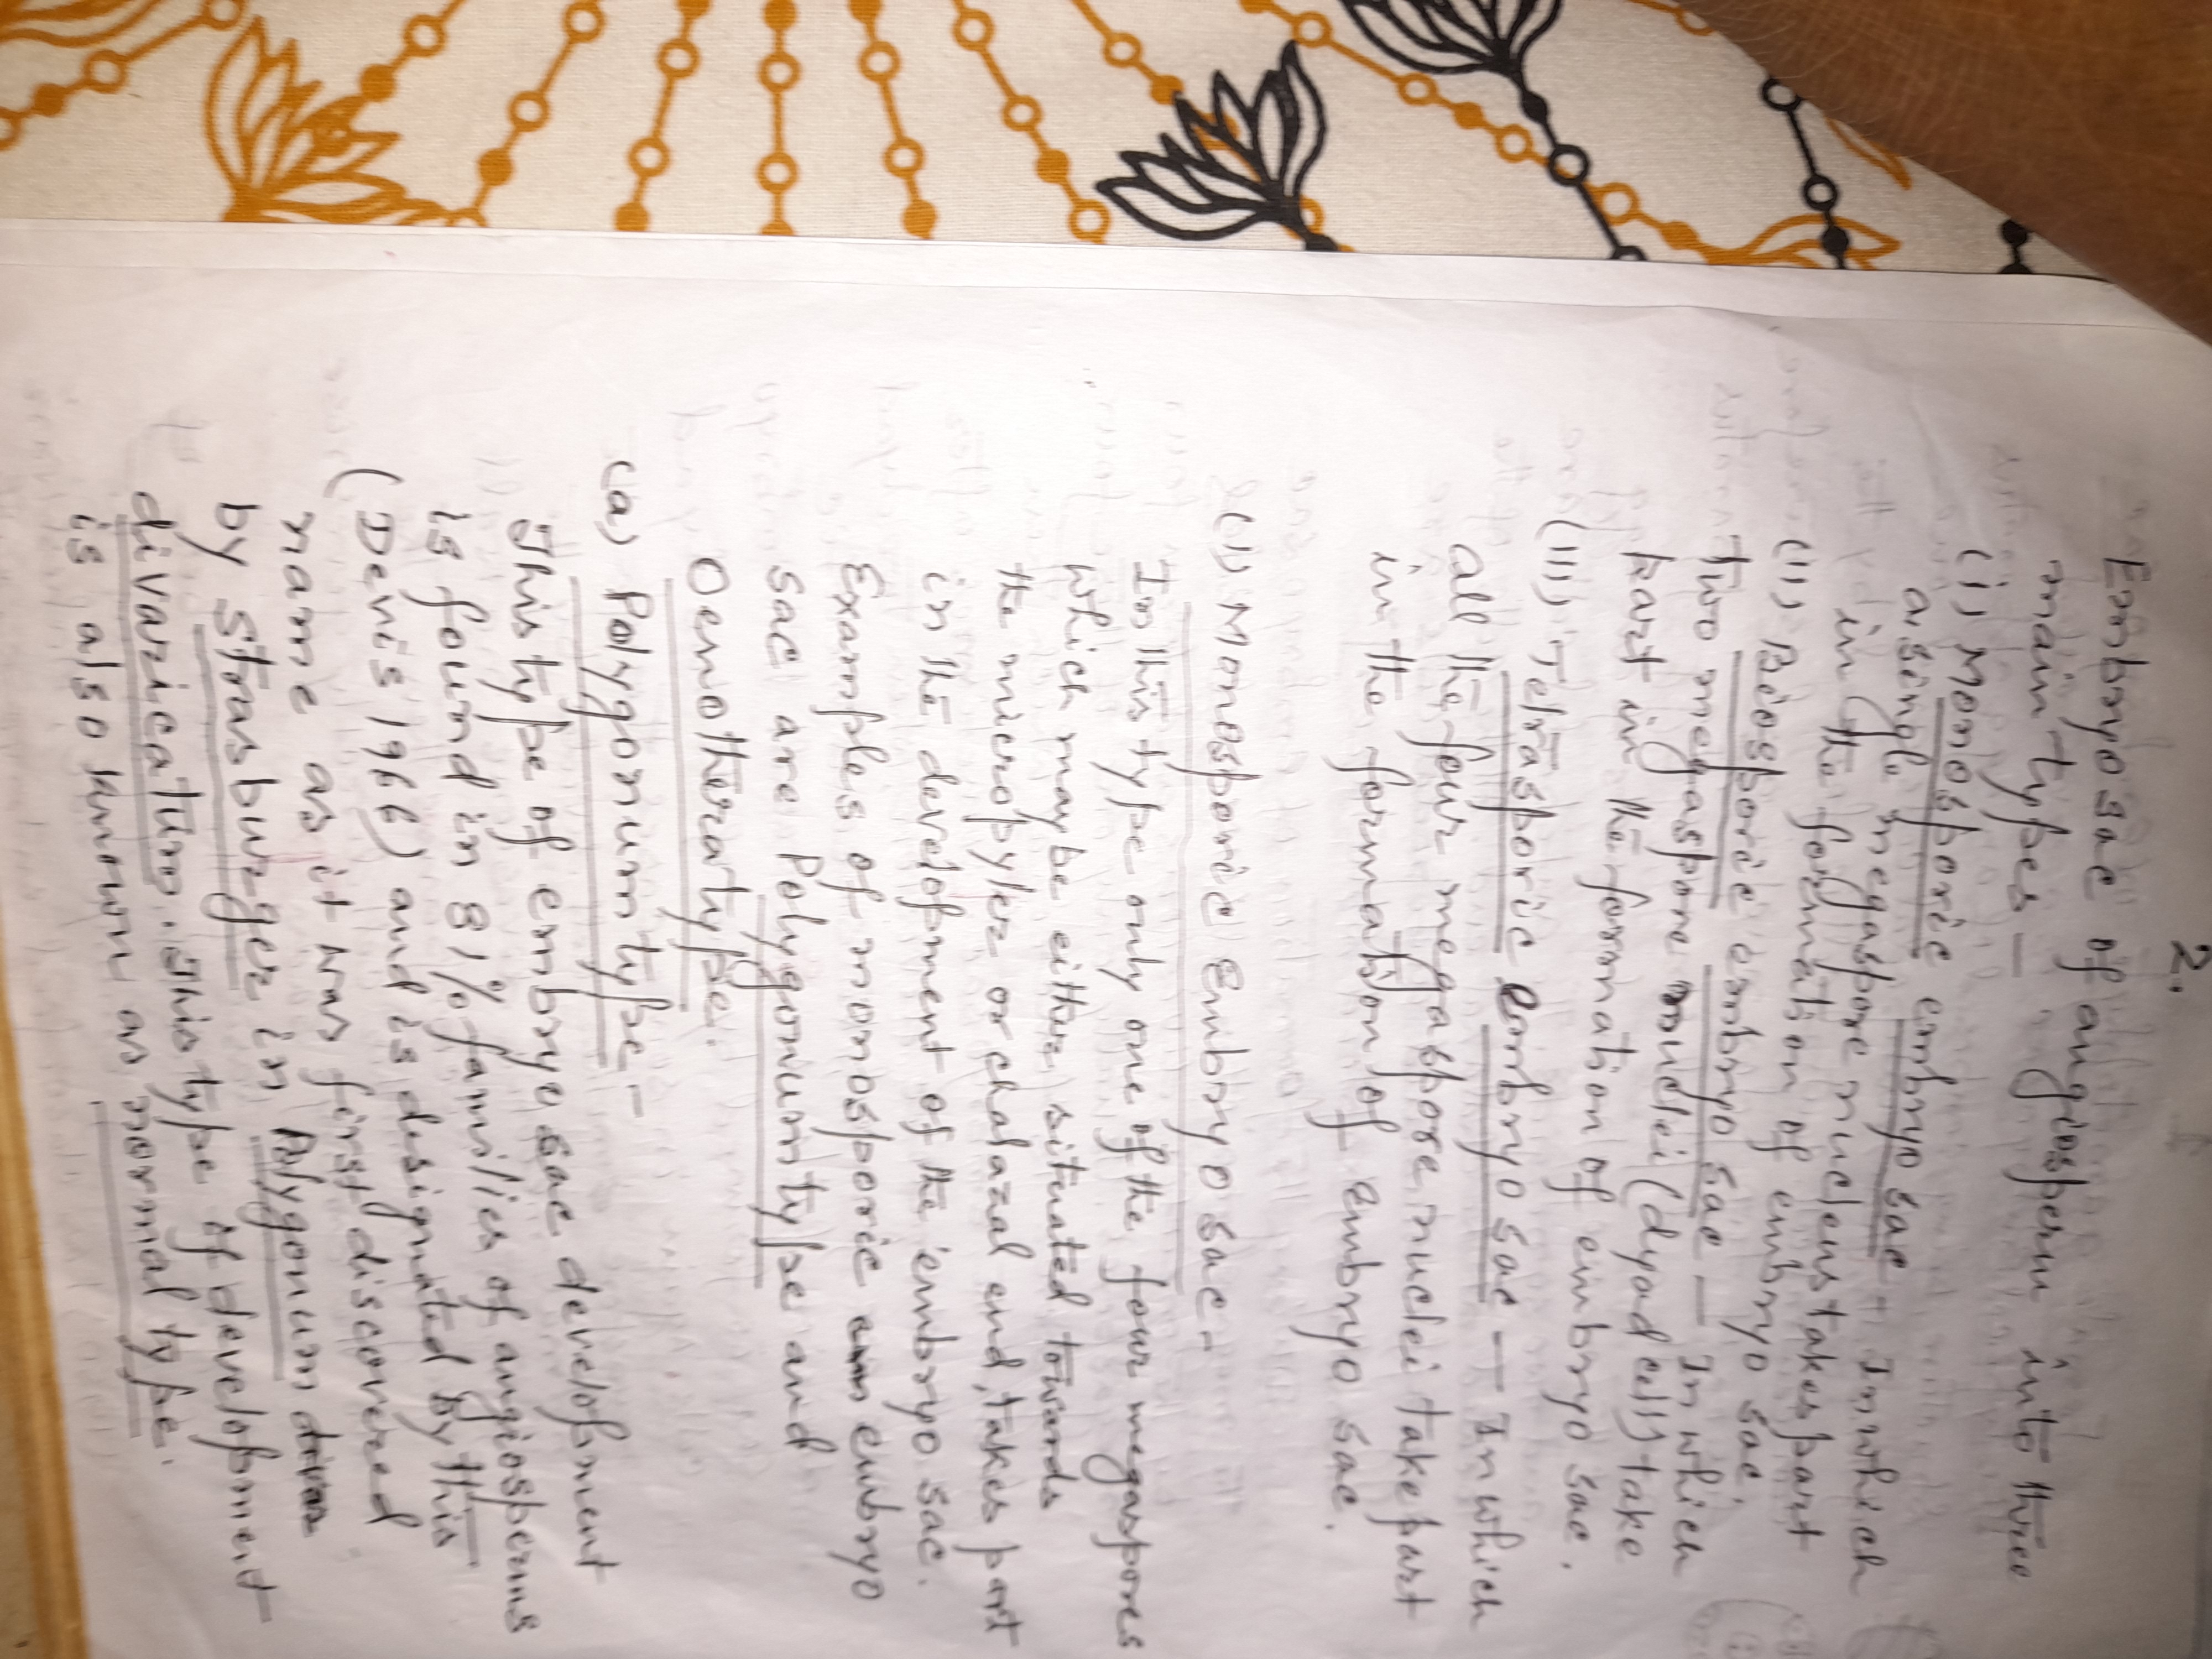 2.
Embryo sac of angiosperm into three
main types —
(i) Monosporic embryo sac - In which
a single megaspore nucleus takes part
in the formation of embryo sac.
(ii) Biosporic embryo sac — In which
two megaspore nuclei (dyad cell) take
part in the formation of embryo sac.
(iii) Tetrasporic embryo sac — In which
all the four megaspore nuclei take part
in the formation of embryo sac.
(i) Monosporic Embryo sac -
In this type only one of the four megaspores
which may be either situated towards
the micropyler or chalazal end, takes part
in the development of the embryo sac.
Examples of monosporic embryo
sac are Polygonum type and
Oenothera type.
(a) Polygonum type -
This type of embryo sac development
is found in 81% families of angiosperms
(Devis 1966) and is designated by this
name as it was first discovered
by Strasburger in Polygonum
divaricatum. This type of development
is also known as normal type.